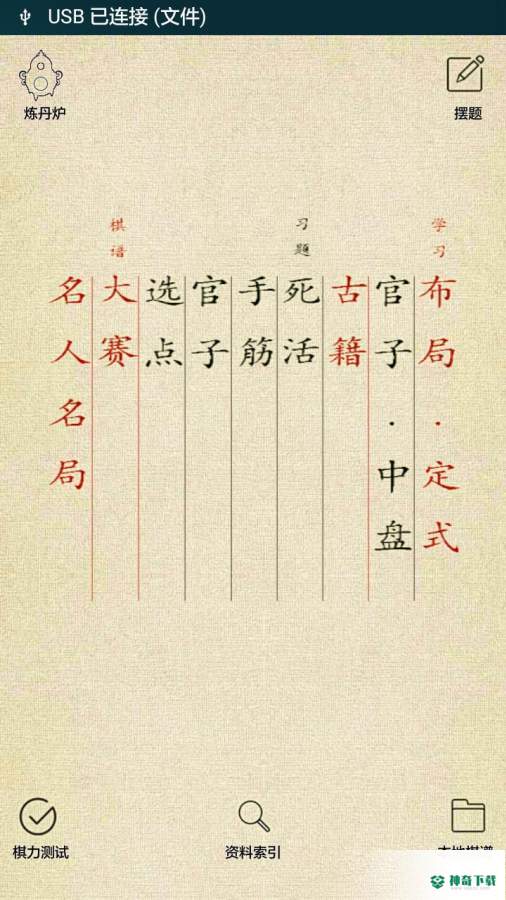 USB 已连接 (文件)
炼丹炉
摆题
学习
布局·定式
官子·中盘
古籍
习题
死活
手筋
官子
选点
棋谱
大赛
名人名局
棋力测试
资料索引
本地棋谱
神奇下载